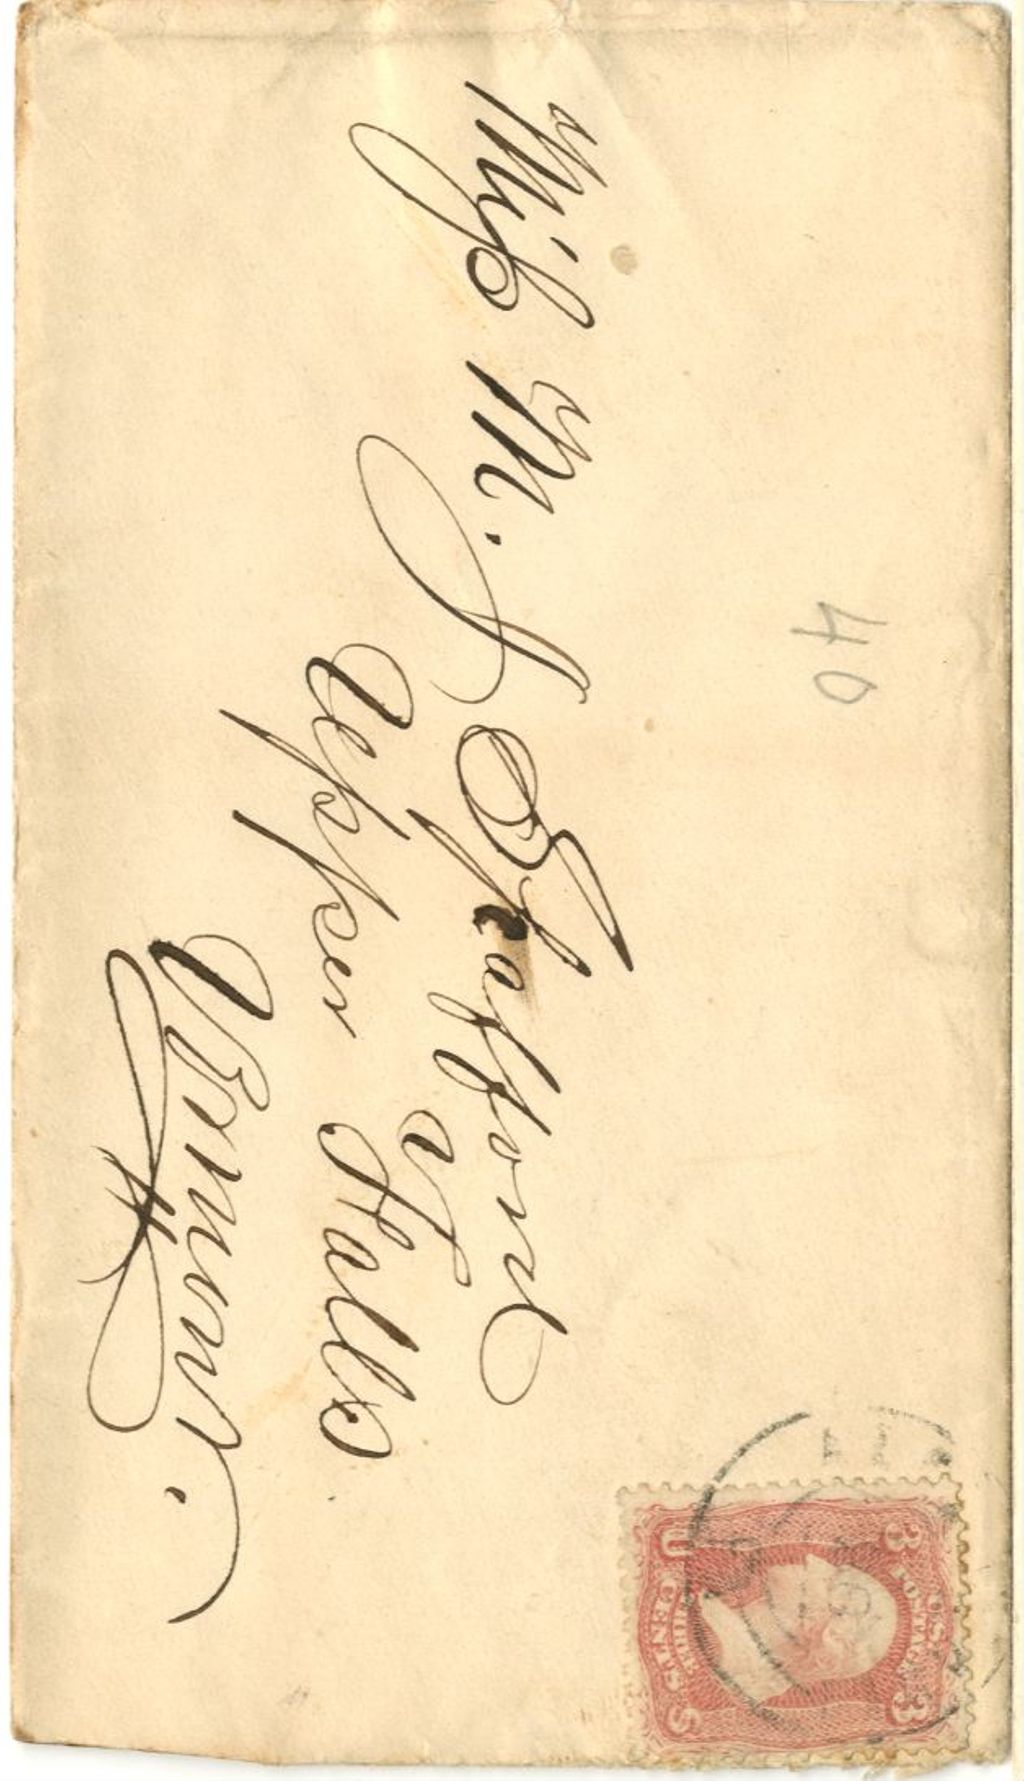 40
Miss M. S. Spafford
at
Upper Falls
Vermont.
U.S. POSTAGE
3 3
U S
THREE CENTS